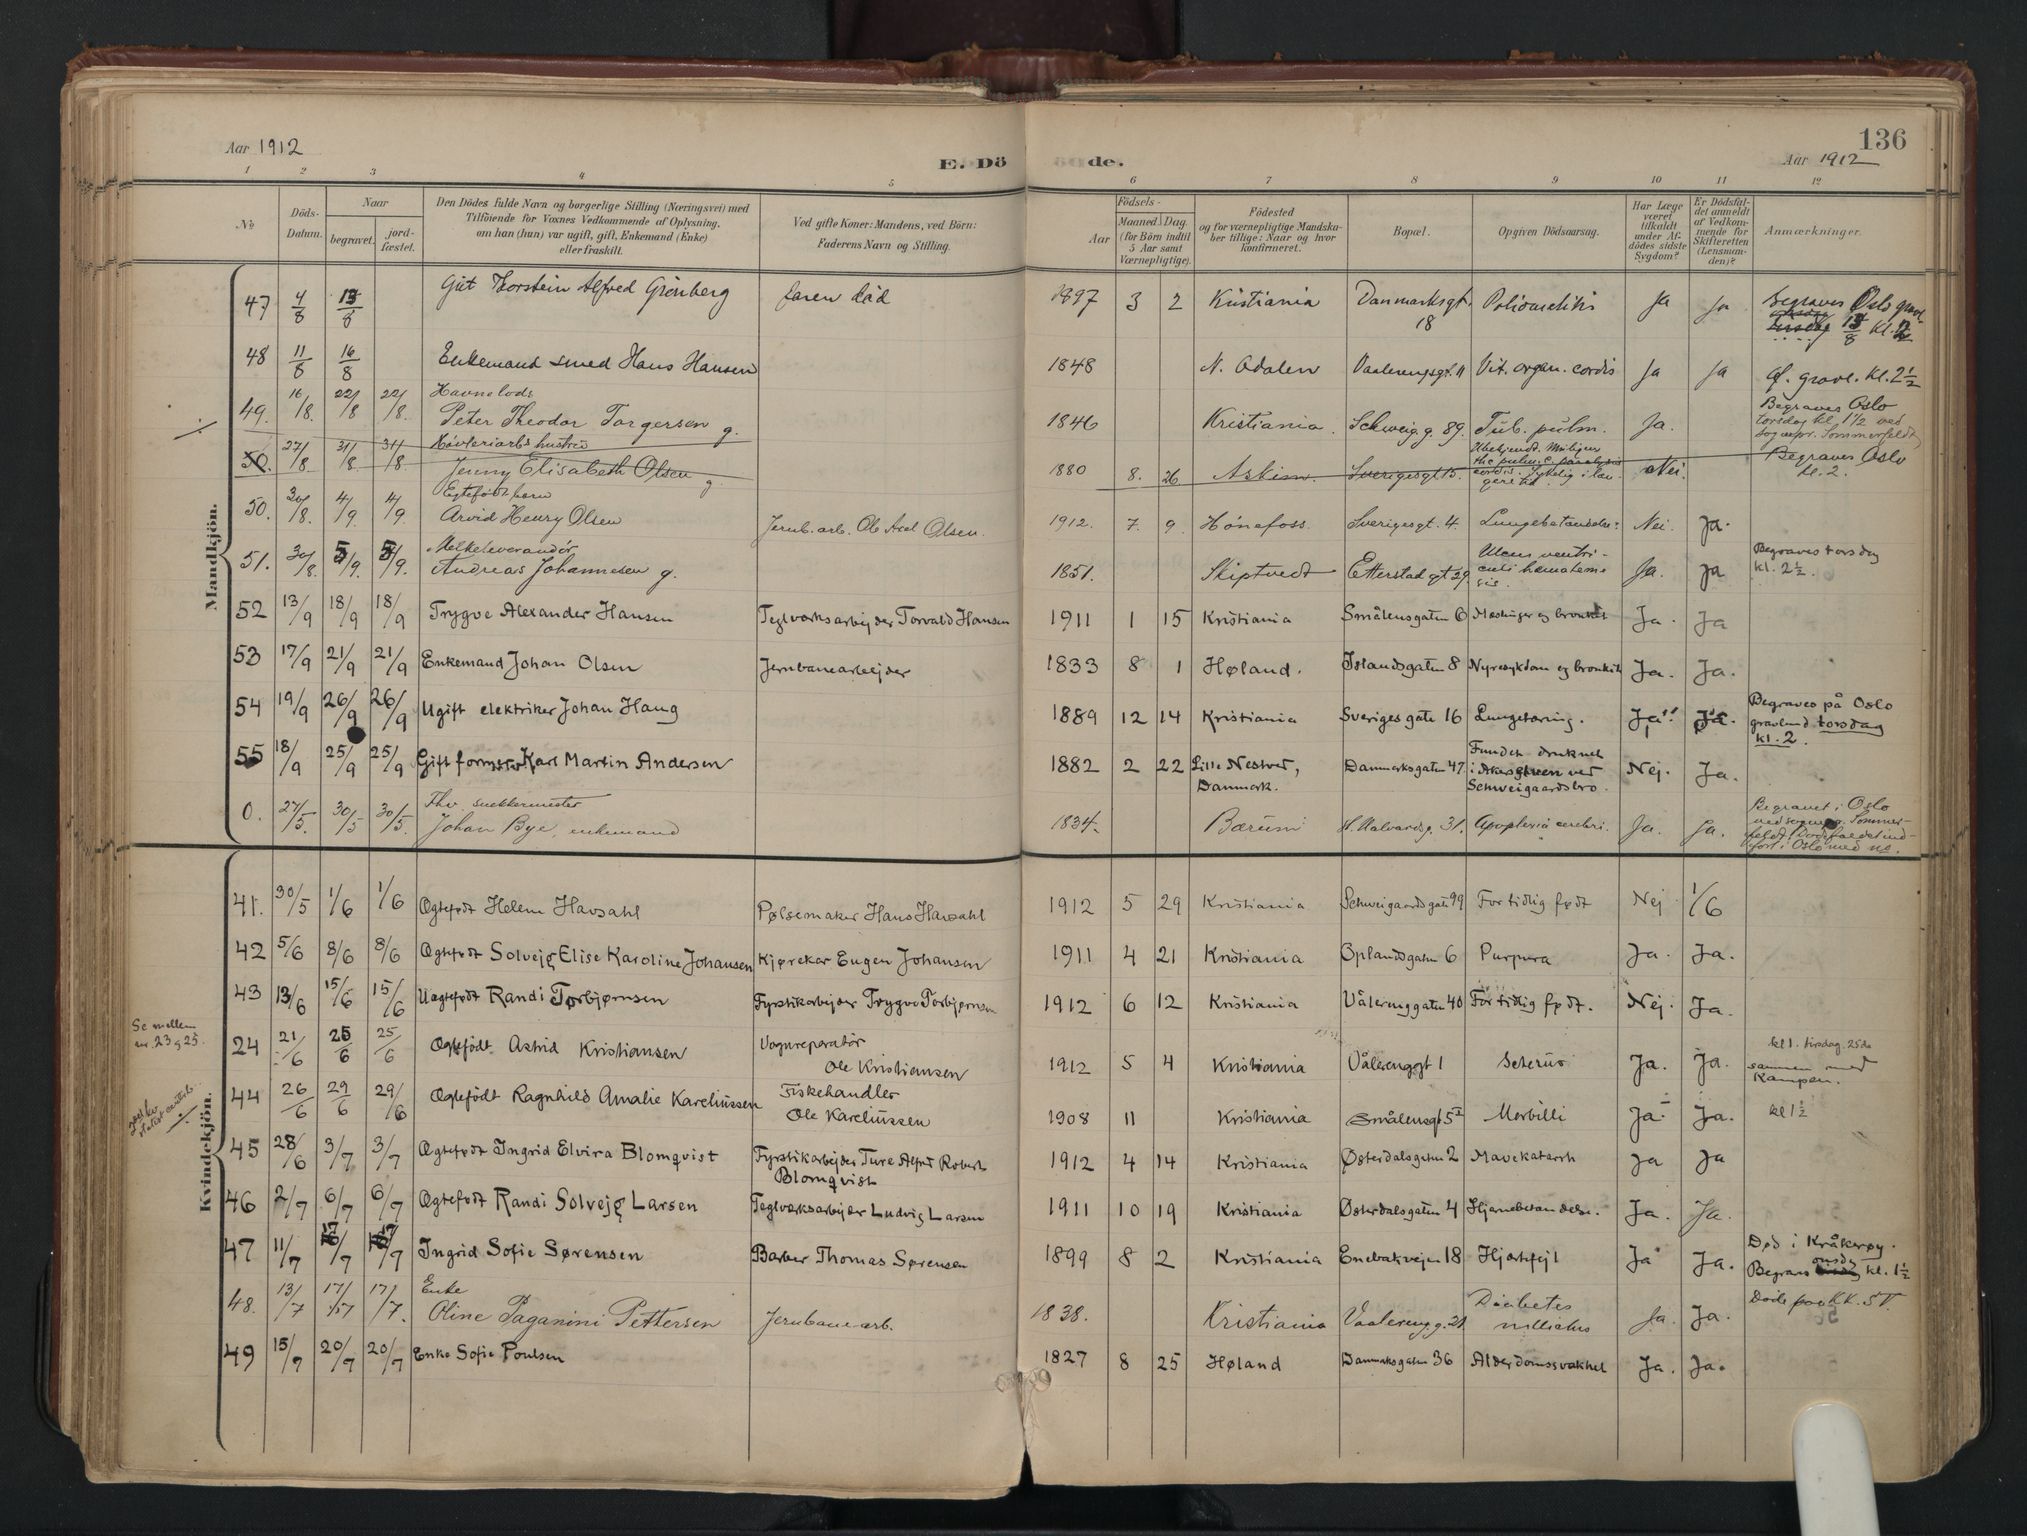 Aar 1912
E. Döde.
Aar 1912
136
1 2 3 4 5 6 7 8 9 10 11 12
No
Döds-Datum.
Naar
begravet.
jord-fæstet.
Den Dödes fulde Navn og borgerlige Stilling (Næringsvei) med
Tilföiende for Voxnes Vedkommende af Oplysning,
om han (hun) var ugift, gift, Enkemand (Enke)
eller fraskilt.
Ved gifte Koner: Mandens, ved Börn:
Faderens Navn og Stilling.
Födsels-
Aar
Maaned. Dag.
(for Börn indtil
5 Aar samt
Værnepligtige).
Födested
og for værnepligtige Mandskaber tillige: Naar og hvor
konfirmeret.
Bopæl.
Opgiven Dödsaarsag.
Har Læge
været
tilkaldt
under Afdödes sidste
Sygdom?
Er Dödsfaldet anmeldt
af Vedkommende for
Skifteretten
(Lensmanden)?
Anmærkninger.
Mandkjön.
47 4/8 13/8 Gut Thorstein Alfred Grönberg faren död 1897 3 2 Kristiania Danmarksgt. 18 Ja Ja Begraves Oslo 13/8
48 11/8 16/8 Enkemand smed Hans Hansen 1848 N. Odalen Vaalerengsgt. 11 Vit. organ. cordis Ja Ja Gl. gravl. kl. 2 1/2
49. 16/8. 22/8 22/8. Havnelods
Peter Theodor Torgersen g. 1846 Kristiania. Schweigg. 89. Tub. pulm. Ja. Begraves Oslo
torsdag kl. 1 1/2 ved
sognepr. Sommerfeldt
50. 27/8. 31/8. 31/8. Høvleriarbs hustru
Jenny Elisabeth Olsen g. 1880 8. 26. Askim. Sverigesgt 15. Nei. Begraves Oslo
kl. 2.
50. 30/8. 4/9. 4/9. Egtefödt barn
Arvid Henry Olsen Jernb. arb. Ole Axel Olsen. 1912. 7. 9. Hönefoss. Sverigesgt. 4. Lungebetændelse. Nei. Ja.
51. 30/8. 5/9. 5/9. Melkeleverandör
Andreas Johannesen g. 1851. Skiptvedt Etterstadgt 29. Ulcus ventriculi hæmatemesis Ja. Ja Begraves torsdag
kl. 2 1/2.
52 13/9 18/9 18/9 Trygve Alexander Hansen Teglværksarbejder Torvald Hansen 1911 1 15 Kristiania Smålensgaten 6 Mæslinger og bronkit Ja. Ja
53 17/9 21/9 21/9 Enkemand Johan Olsen Jernbanearbejder 1833 8 1 Høland. Islandsgaten 8 Nyresykdom og bronkit Ja. Ja.
54 19/9 26/9 26/9 Ugift elektriker Johan Haug 1889 12 14 Kristiania Sverigesgate 16 Lungetæring. Ja Ja. Begraves på Oslo
gravlund torsdag
kl. 2.
55 18/9 25/9 25/9 Gift former Karl Martin Andersen 1882 2 22 Lille Nestved,
Danmark. Danmarksgaten 47. Funden druknet
i Akerselven ved
Schweigaardsbro. Nej. Ja.
0. 27/5. 30/5 30/5. Fhv. snekkermester
Johan Bye, enkemand 1834. Bærum H. Halvardsg. 31. Apoplexia cerebri. Ja. Ja. Begravet i Oslo
ved sognepr. Sommerfeldt. Dødsfaldet indført i Oslo med no.
Kvindekjön.
41. 30/5 1/6 1/6 Ægtefødt Helene Havsahl Pølsemaker Hans Havsahl 1912 5 29 Kristiania Schweigaardsgate 99 For tidlig født Nej 1/6
42 5/6 8/6 8/6 Ægtefødt Solvejg Elise Karoline Johansen Kjørekar Eugen Johansen 1911 4 21 Kristiania Oplandsgaten 6 Purpura Ja. Ja.
43 13/6 15/6 15/6 Uægtefødt Randi Torbjørnsen Fyrstikarbejder Trygve Torbjørnsen 1912 6 12 Kristiania Vålerenggaten 40 For tidlig født. Nej. Ja.
Se mellem
nr. 23 og 25.
24 21/6 25/6 25/6 Ægtefödt Astrid Kristiansen Vognreparatör
Ole Kristiansen 1912 5 4 Kristiania Vålerenggt 1 Ja. Ja. kl 1. tirsdag. 25de
sammen med
Kampen.
44 26/6 29/6 29/6 Ægtefödt Ragnhild Amalie Kareliussen Fiskehandler
Ole Kareliussen 1908 11 Kristiania Smålensgt 5 I Morbilli Ja. Ja. kl 1 1/2
45 28/6 3/7 3/7 Ægtefødt Ingrid Elvira Blomqvist Fyrstikarbejder Ture Alfred Robert
Blomqvist 1912 4 14 Kristiania Østerdalsgaten 2 Mavekatarrh Ja Ja
46 2/7 6/7 6/7 Ægtefødt Randi Solvejg Larsen Teglværksarbejder Ludvig Larsen 1911 10 19 Kristiania Østerdalsgaten 4 Hjernebetændelse. Ja. Ja.
47 11/7 17/7 17/7 Ingrid Sofie Sørensen Barber Thomas Sørensen 1899 8 2 Kristiania Enebakvejen 18 Hjertefejl Ja Ja. Død i Kråkerøy.
Begraves onsdag kl. 1 1/2
48. 13/7 17/7 17/7. Enke
Oline Paganini Pettersen Jernbanearb. 1838. Kristiania Vaalerengg. 21 Diabetes
mellitus Ja. Ja. Døde paa KK. S V.
49 15/7 20/7 20/7 Enke Sofie Poulsen 1827 8 25 Høland Danmarksgaten 36 Alderdomssvakhet Ja. Ja.